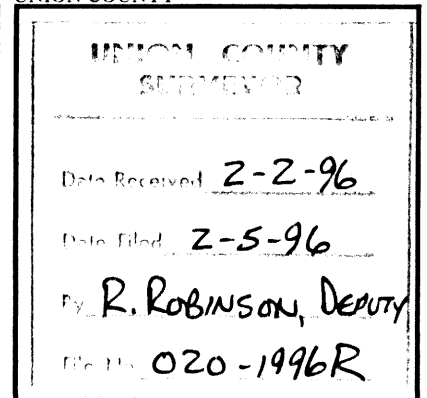 UNION COUNTY
UNION COUNTY
SURVEYOR
Date Received 2-2-96
Date Filed 2-5-96
By R. ROBINSON, DEPUTY
File No 020-1996R